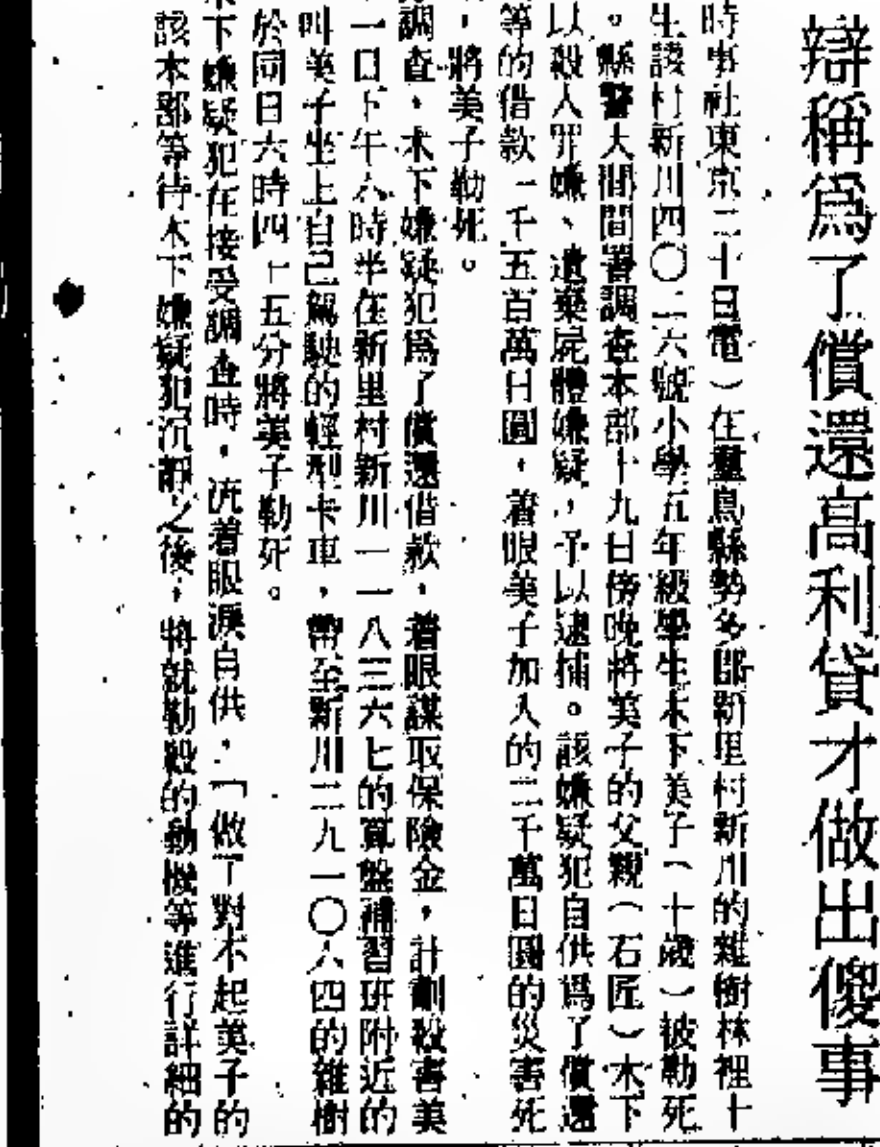 辯稱爲了償還高利貸才做出傻事
時事社東京二十日電）在羣馬縣勢多郡新里村新川的雜樹林裡十
生該村新川四〇二六號小學五年級學生木下美子（十歲）被勒死
。縣警大間間署調查本部十九日傍晚將美子的父親（石匠）木下
以殺人罪嫌、遺棄屍體嫌疑，予以逮捕。該嫌疑犯自供爲了償還
等的借款一千五百萬日圓，着眼美子加入的二千萬日圓的災害死
，將美子勒死。
調查，木下嫌疑犯爲了償還借款，着眼謀取保險金，計劃殺害美
一日下午六時半在新里村新川一一八三六七的算盤補習班附近的
叫美子坐上自己駕駛的輕型卡車，帶至新川二九一〇八四的雜樹
於同日六時四十五分將美子勒死。
木下嫌疑犯在接受調查時，流着眼淚自供，「做了對不起美子的
該本部等待木下嫌疑犯沉靜之後，將就勒殺的動機等進行詳細的